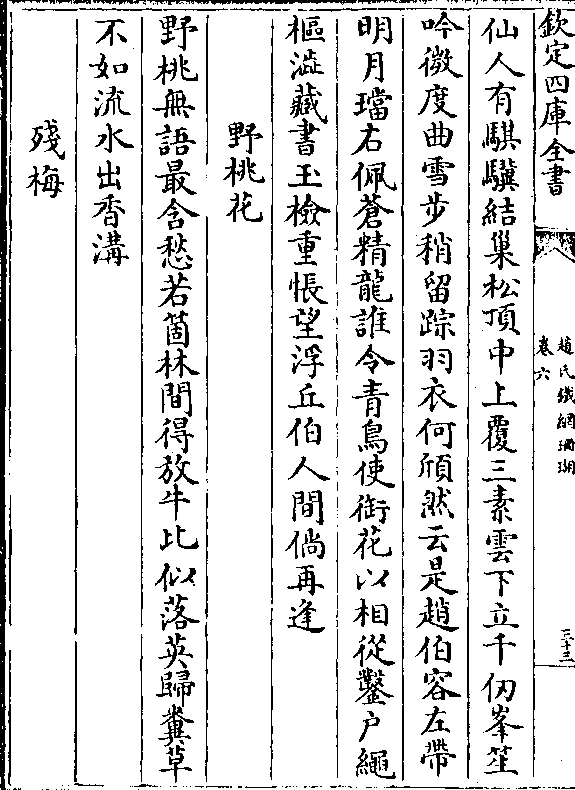 欽定四庫全書
趙氏鐵網珊瑚
卷六
三十三
仙人有騏驥結巢松頂中上覆三素雲下立千仞峯笙
吟微度曲雪步稍留踪羽衣何頎然云是趙伯容左帶
明月璫右佩蒼精龍誰令青鳥使銜花以相從鑿户繩
樞澁藏書玉檢重悵望浮丘伯人間倘再逢
野桃花
野桃無語最含愁若箇林間得放牛比似落英歸糞草
不如流水出香溝
殘梅